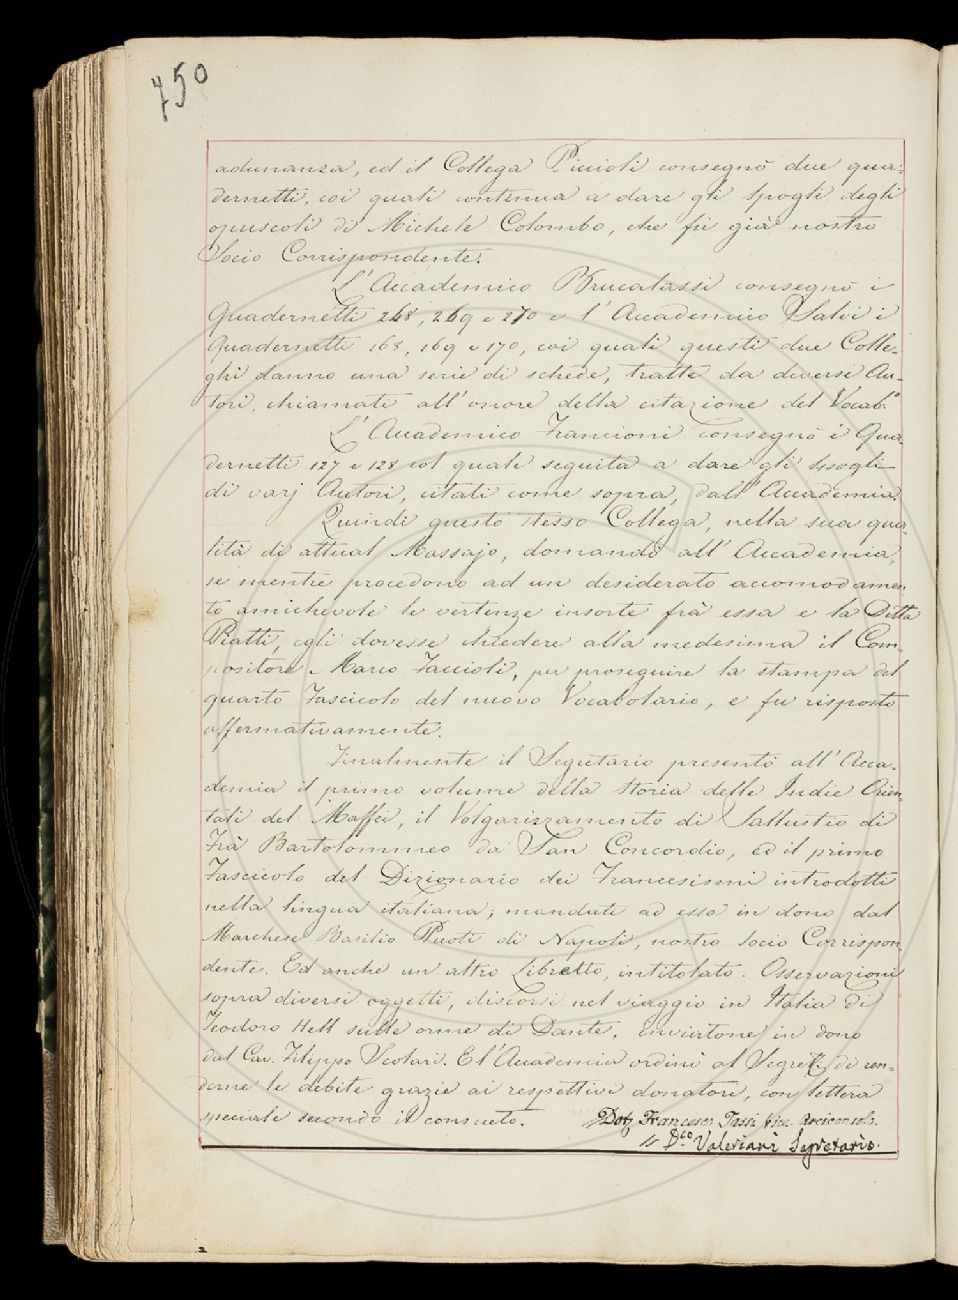 750
adunanza, ed il Collega Piccioli consegnò due qua-
dernetti, coi quali continua a dare gli spogli degli
opuscoli di Michele Colombo, che fù già nostro
Socio Corrispondente.
L'Accademico Brucalassi consegnò i
Quadernetti 268, 269 e 270 e l'Accademico Salvi i
Quadernetti 168, 169 e 170, coi quali questi due Colle-
ghi danno una serie di schede, tratte da diversi Au-
tori, chiamati all'onore della citazione del Vocab.o
L'Accademico Francioni consegnò i Qua-
dernetti 127 e 128 col quale seguita a dare gli spogli
di varj Autori, citati come sopra, dall'Accademia.
Quindi questo stesso Collega, nella sua qua-
lità di attual Massajo, domandò all'Accademia,
se mentre procedono ad un desiderato accomodamen-
to amichevole le vertenze insorte frà essa e la Ditta
Piatti, egli dovesse chiedere alla medesima il Com-
positore Marco Faccioli, per proseguire la stampa del
quarto Fascicolo del nuovo Vocabolario, e fu risposto
affermativamente.
Finalmente il Segretario presentò all'Acca-
demia il primo volume della Storia delle Indie Orien-
tali del Maffei, il Volgarizzamento di Sallustio di
Frà Bartolommeo da San Concordio, ed il primo
Fascicolo del Dizionario dei Francesismi introdotti
nella lingua italiana, mandati ad essa in dono dal
Marchese Basilio Puoti di Napoli, nostro Socio Corrispon-
dente. Ed anche un altro Libretto, intitolato: Osservazioni
sopra diversi oggetti, discorsi nel viaggio in Italia di
Teodoro Hell sulle orme di Dante, inviatone in dono
dal Cav. Filippo Scolari. E l'Accademia ordinò al Segret.o di ren-
derne le debite grazie ai respettivi donatori, con lettera
speciale secondo il consueto.
Dott. Francesco Tassi Vice Arciconsolo.
D.co Valeriani Segretario.